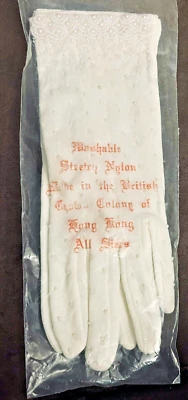 Washable
Stretch Nylon
Made in the British
Crown Colony of
Hong Kong
All Sizes